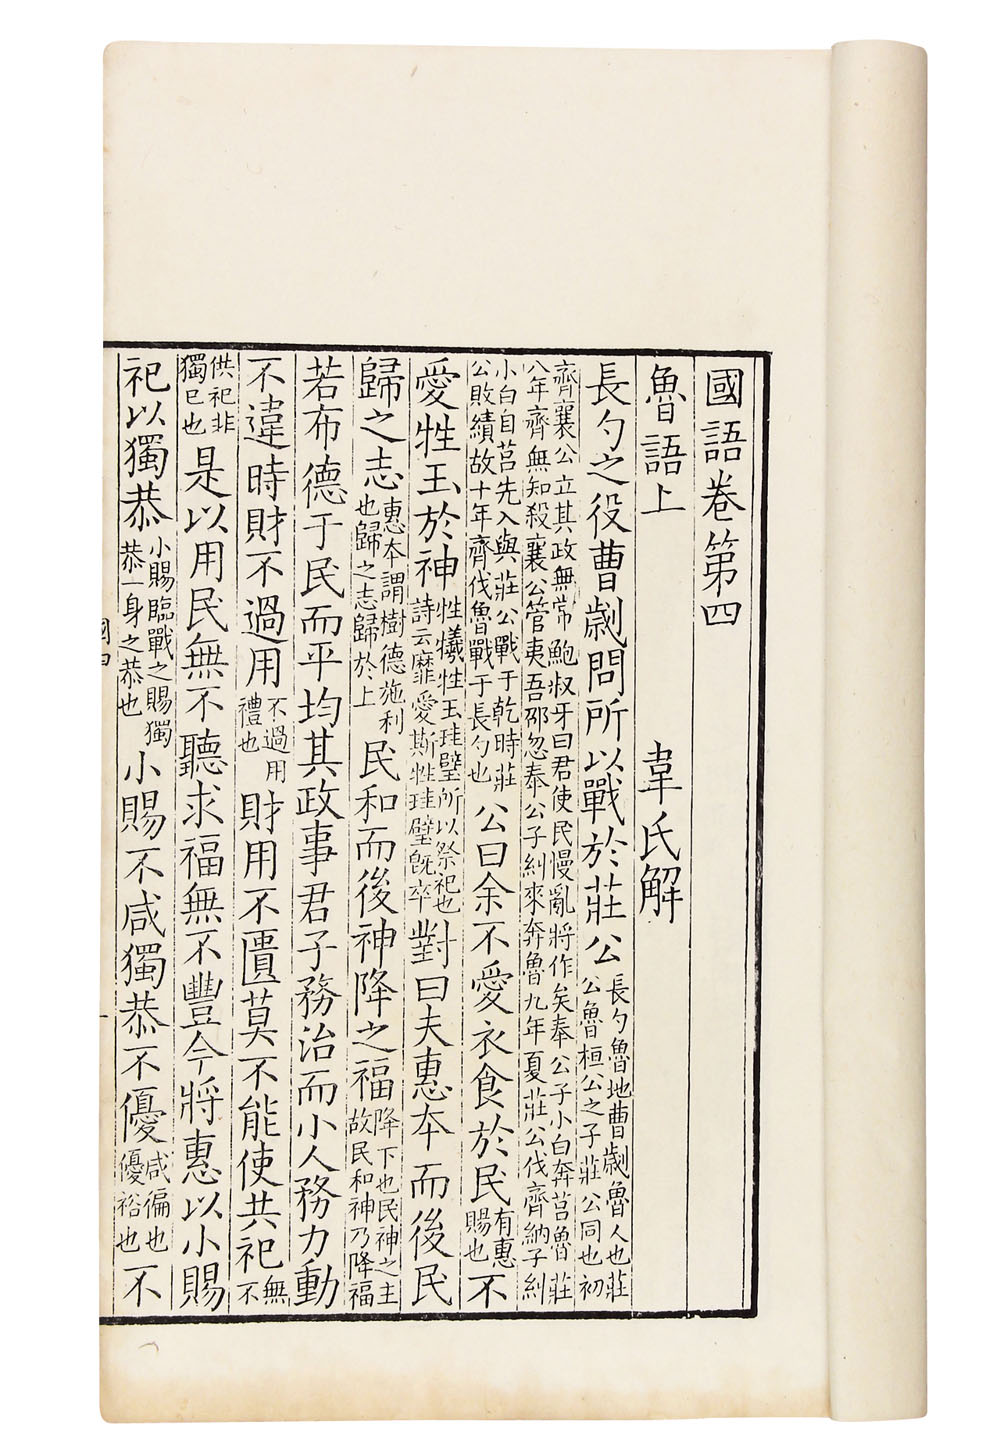 國語卷第四
魯語上　韋氏解
長勺之役曹劌問所以戰於莊公長勺魯地曹劌魯人也莊公魯桓公之子莊公同也初
齊襄公立其政無常鮑叔牙曰君使民慢亂將作矣奉公子小白奔莒魯莊八年齊無知殺襄公管夷吾邵忽奉公子糾來奔魯九年夏莊公伐齊納子糾
小白自莒先入與莊公戰于乾時莊公敗績故十年齊伐魯戰于長勺也公曰余不愛衣食於民有惠賜也不
愛牲玉於神牲犧牲玉珪璧所以祭祀也詩云靡愛斯牲珪璧既卒對曰夫惠本而後民
歸之志惠本謂樹德施利也歸之志歸於上民和而後神降之福降下也民神之主故民和神乃降福
若布德于民而平均其政事君子務治而小人務力動
不違時財不過用不過用禮也財用不匱莫不能使共祀無不
供祀非獨已也是以用民無不聽求福無不豐今將惠以小賜
祀以獨恭小賜臨戰之賜獨恭一身之恭也小賜不咸獨恭不優咸徧也優裕也不